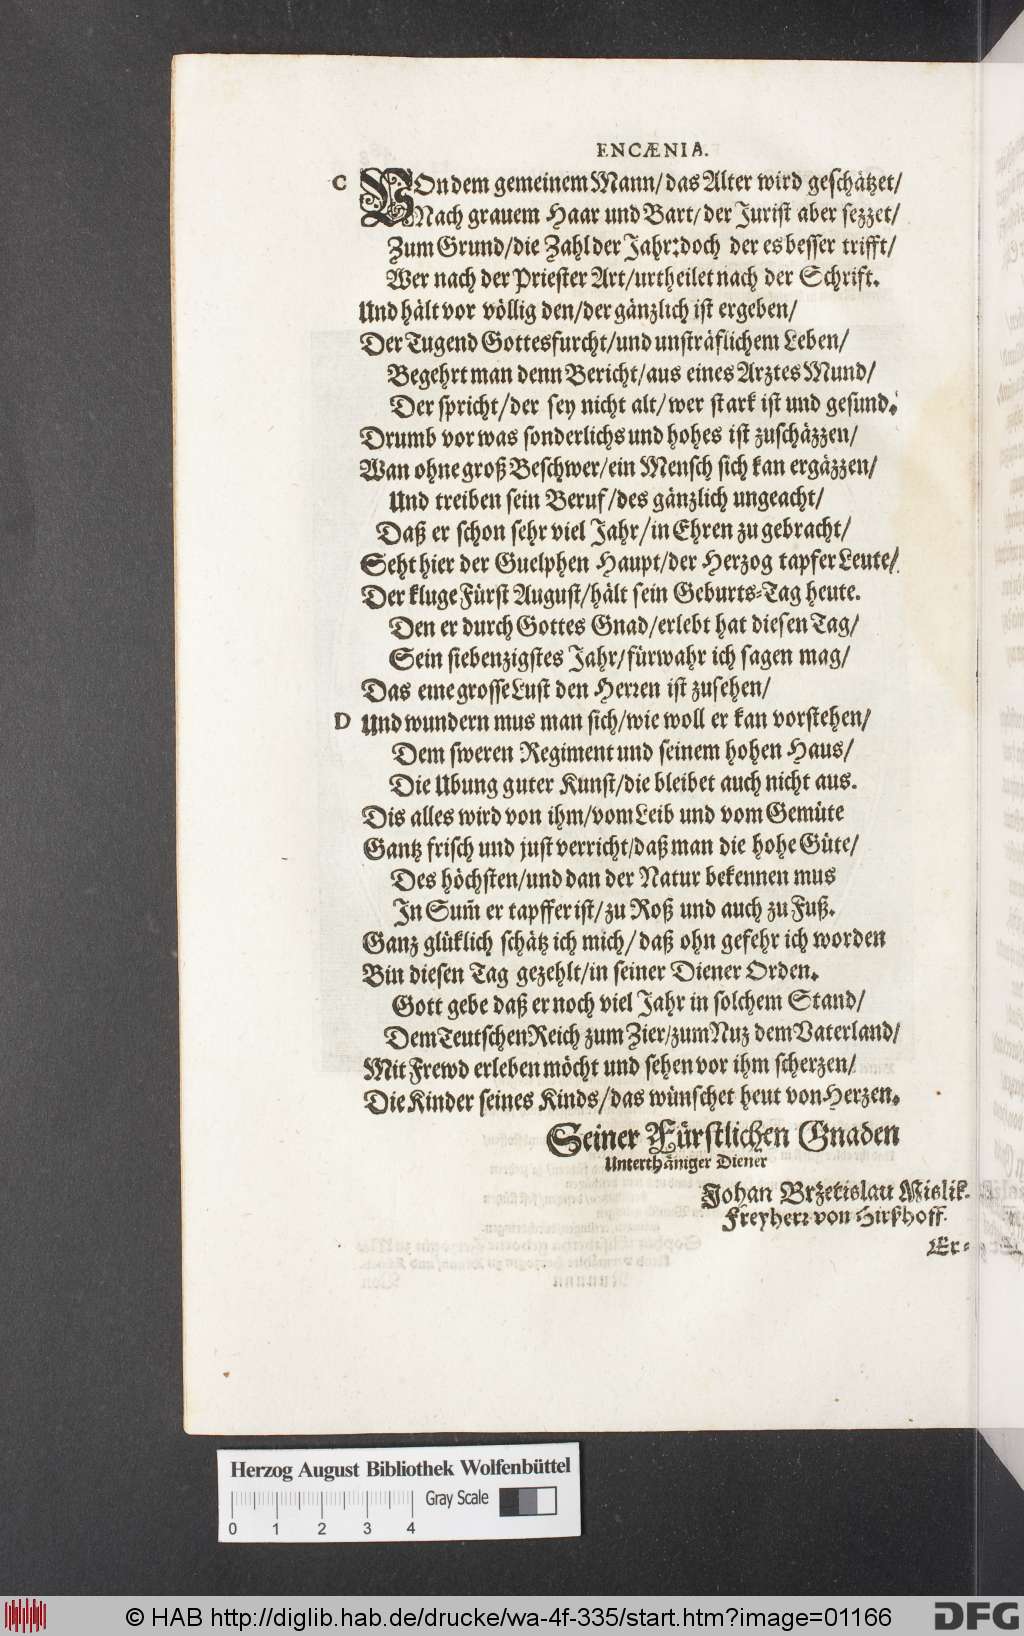 ENCÆNIA.
C VOn dem gemeinem Mann/ das Alter wird geschätzet/
Nach grauem Haar und Bart/ der Jurist aber sezzet/
Zum Grund/ die Zahl der Jahr: doch der es besser trifft/
Wer nach der Priester Art/ urtheilet nach der Schrift.
Und hält vor völlig den/ der gänzlich ist ergeben/
Der Tugend Gottesfurcht/ und unsträflichem Leben/
Begehrt man denn Bericht/ aus eines Arztes Mund/
Der spricht/ der sey nicht alt/ wer stark ist und gesund.
Drumb vor was sonderlichs und hohes ist zuschäzzen/
Wan ohne groß Beschwer/ ein Mensch sich kan ergäzzen/
Und treiben sein Beruf/ des gänzlich ungeacht/
Daß er schon sehr viel Jahr/ in Ehren zu gebracht/
Seht hier der Guelphen Haupt/ der Herzog tapfer Leute/
Der kluge Fürst August/ hält sein Geburts-Tag heute.
Den er durch Gottes Gnad/ erlebt hat diesen Tag/
Sein siebenzigstes Jahr/ fürwahr ich sagen mag/
Das eine grosse Lust den Herren ist zusehen/
D Und wundern mus man sich/ wie woll er kan vorstehen/
Dem sweren Regiment und seinem hohen Haus/
Die Ubung guter Kunst/ die bleibet auch nicht aus.
Dis alles wird von ihm/ vom Leib und vom Gemüte
Gantz frisch und just verricht/ daß man die hohe Güte/
Des höchsten/ und dan der Natur bekennen mus
In Sum̃ er tapffer ist/ zu Roß und auch zu Fuß.
Ganz glüklich schätz ich mich/ daß ohn gefehr ich worden
Bin diesen Tag gezehlt/ in seiner Diener Orden.
Gott gebe daß er noch viel Jahr in solchem Stand/
Dem Teutschen Reich zum Zier/ zum Nuz dem Vaterland/
Mit Frewd erleben möcht und sehen vor ihm scherzen/
Die Kinder seines Kinds/ das wünschet heut von Herzen.
Seiner Fürstlichen Gnaden
Unterthäniger Diener
Johan Bržetislau Mislik.
Freyherr von Hirßhoff.
Er-
Herzog August Bibliothek Wolfenbüttel
Gray Scale
0 1 2 3 4
© HAB http://diglib.hab.de/drucke/wa-4f-335/start.htm?image=01166
DFG